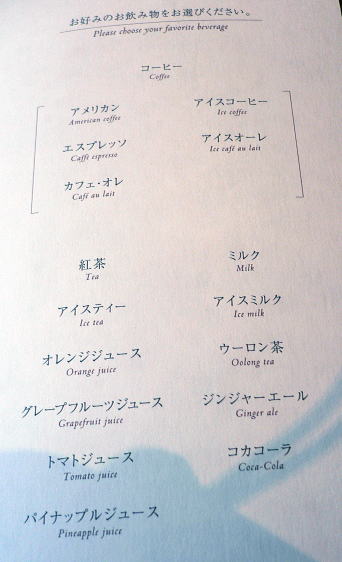 お好みのお飲み物をお選びください。
Please choose your favorite beverage
コーヒー
Coffee
アメリカン
American coffee
エスプレッソ
Caffé espresso
カフェ・オレ
Café au lait
アイスコーヒー
Ice coffee
アイスオーレ
Ice café au lait
紅茶
Tea
ミルク
Milk
アイスティー
Ice tea
アイスミルク
Ice milk
オレンジジュース
Orange juice
ウーロン茶
Oolong tea
グレープフルーツジュース
Grapefruit juice
ジンジャーエール
Ginger ale
トマトジュース
Tomato juice
コカコーラ
Coca-Cola
パイナップルジュース
Pineapple juice